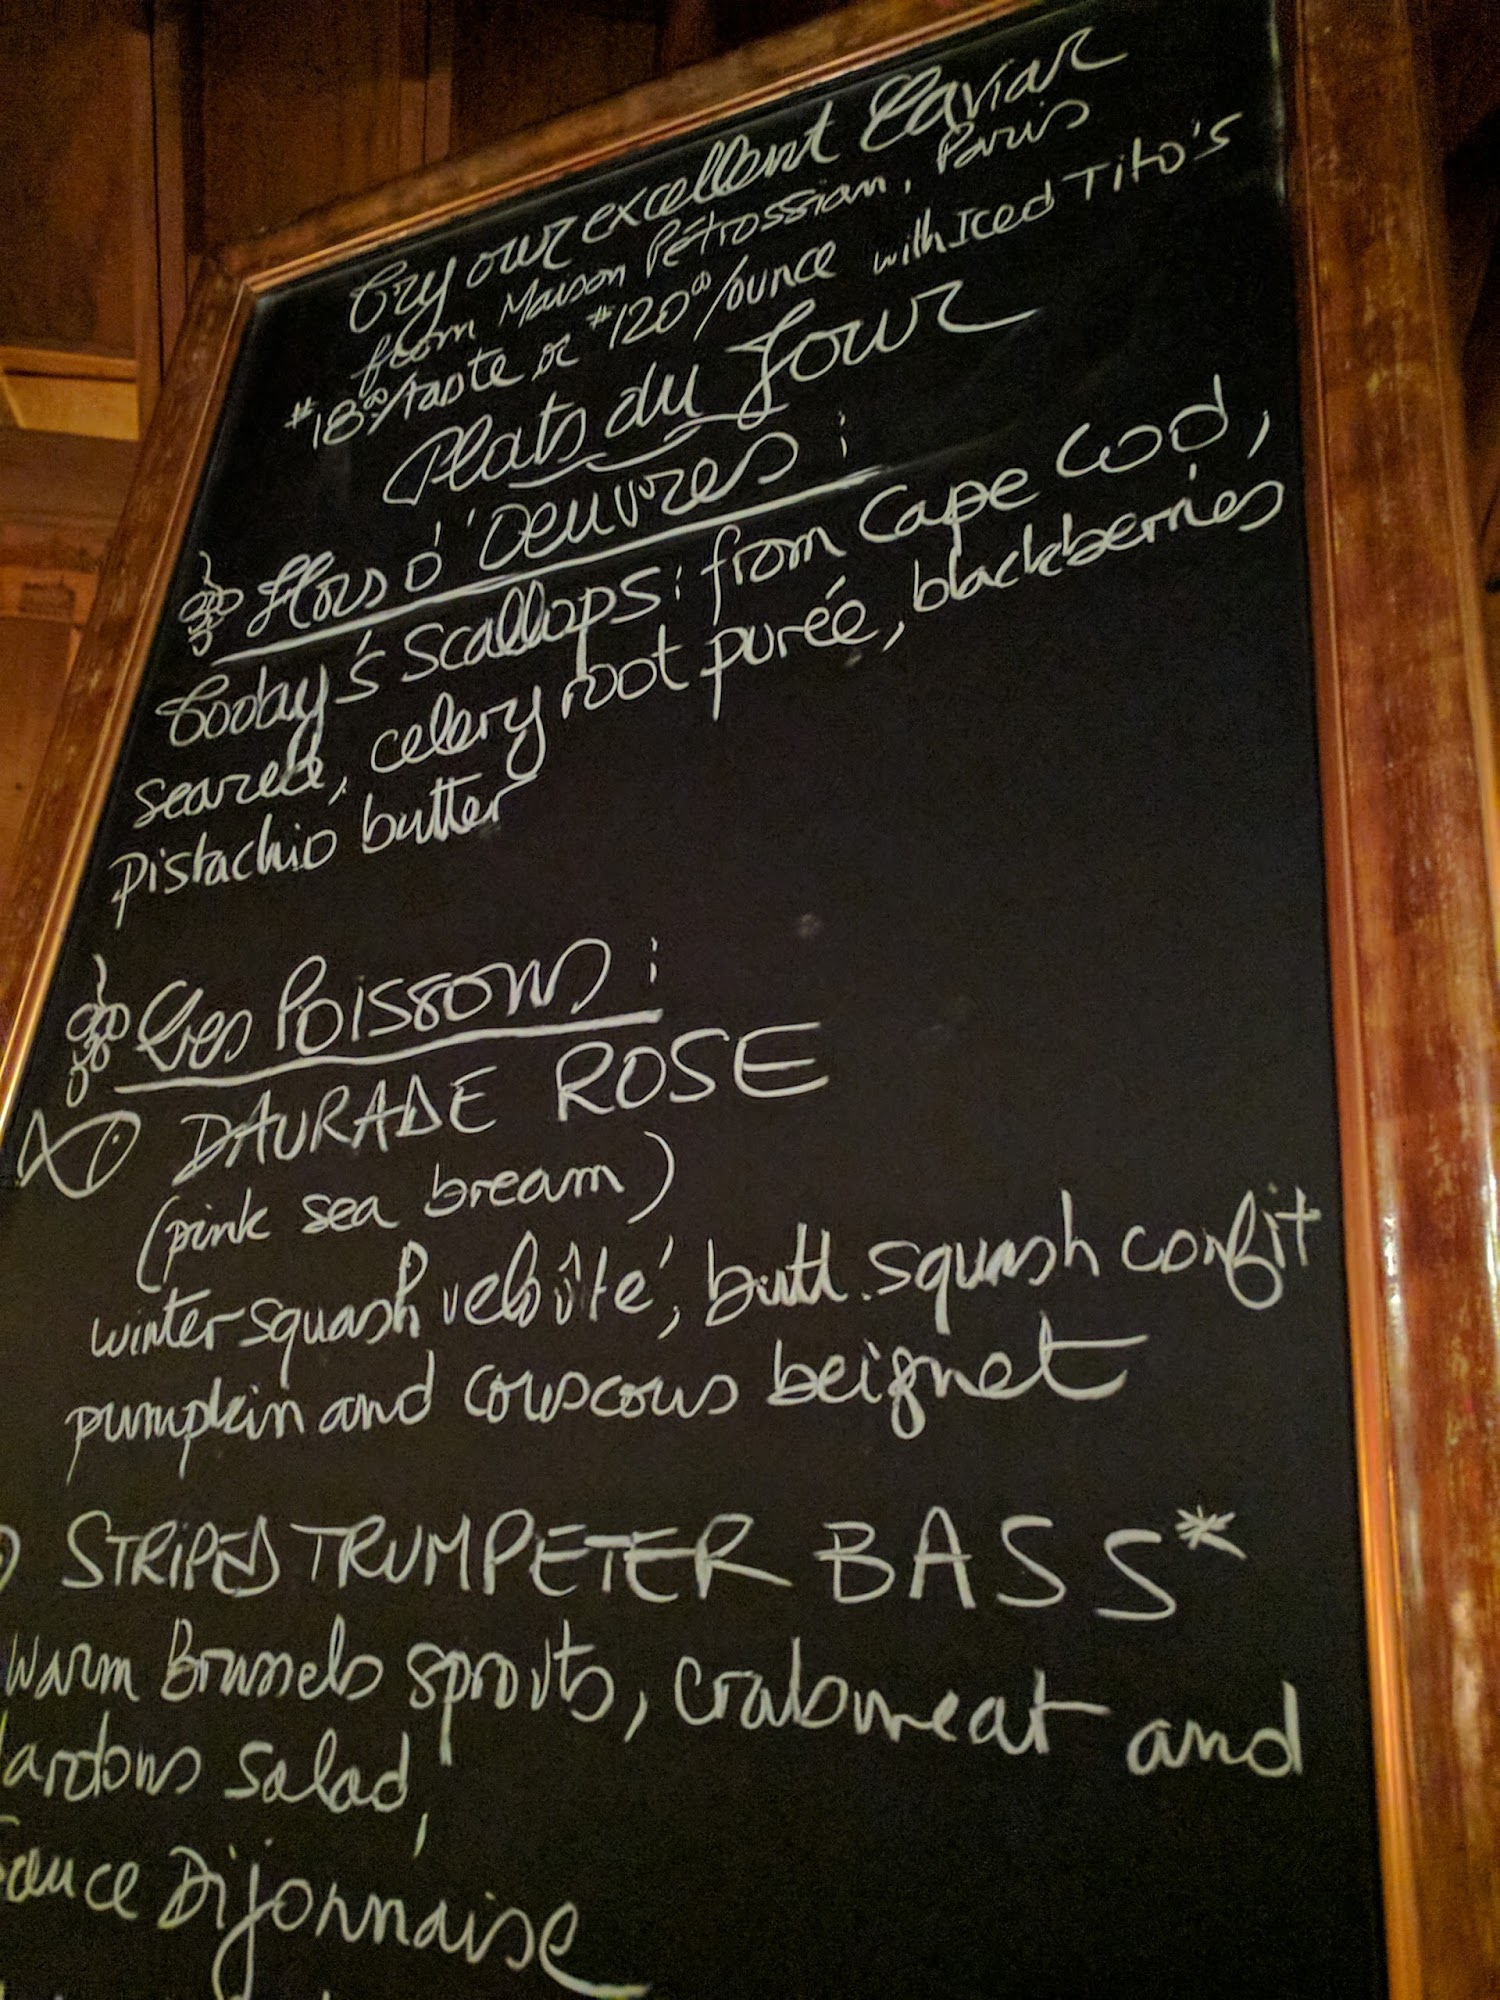 Try our excellent Caviar
from Maison Pétrossian, Paris
$18.00/taste or $120.00/ounce with Iced Tito's
Plats du Jour
Hors d'oeuvres:
Today's Scallops: from Cape Cod,
seared, celery root purée, blackberries
pistachio butter
Les Poissons:
DAURADE ROSE
(pink sea bream)
winter squash veloûté, butt. squash confit
pumpkin and couscous beignet
STRIPED TRUMPETER BASS*
Warm Brussels sprouts, crabmeat and
lardons salad,
Sauce Dijonnaise